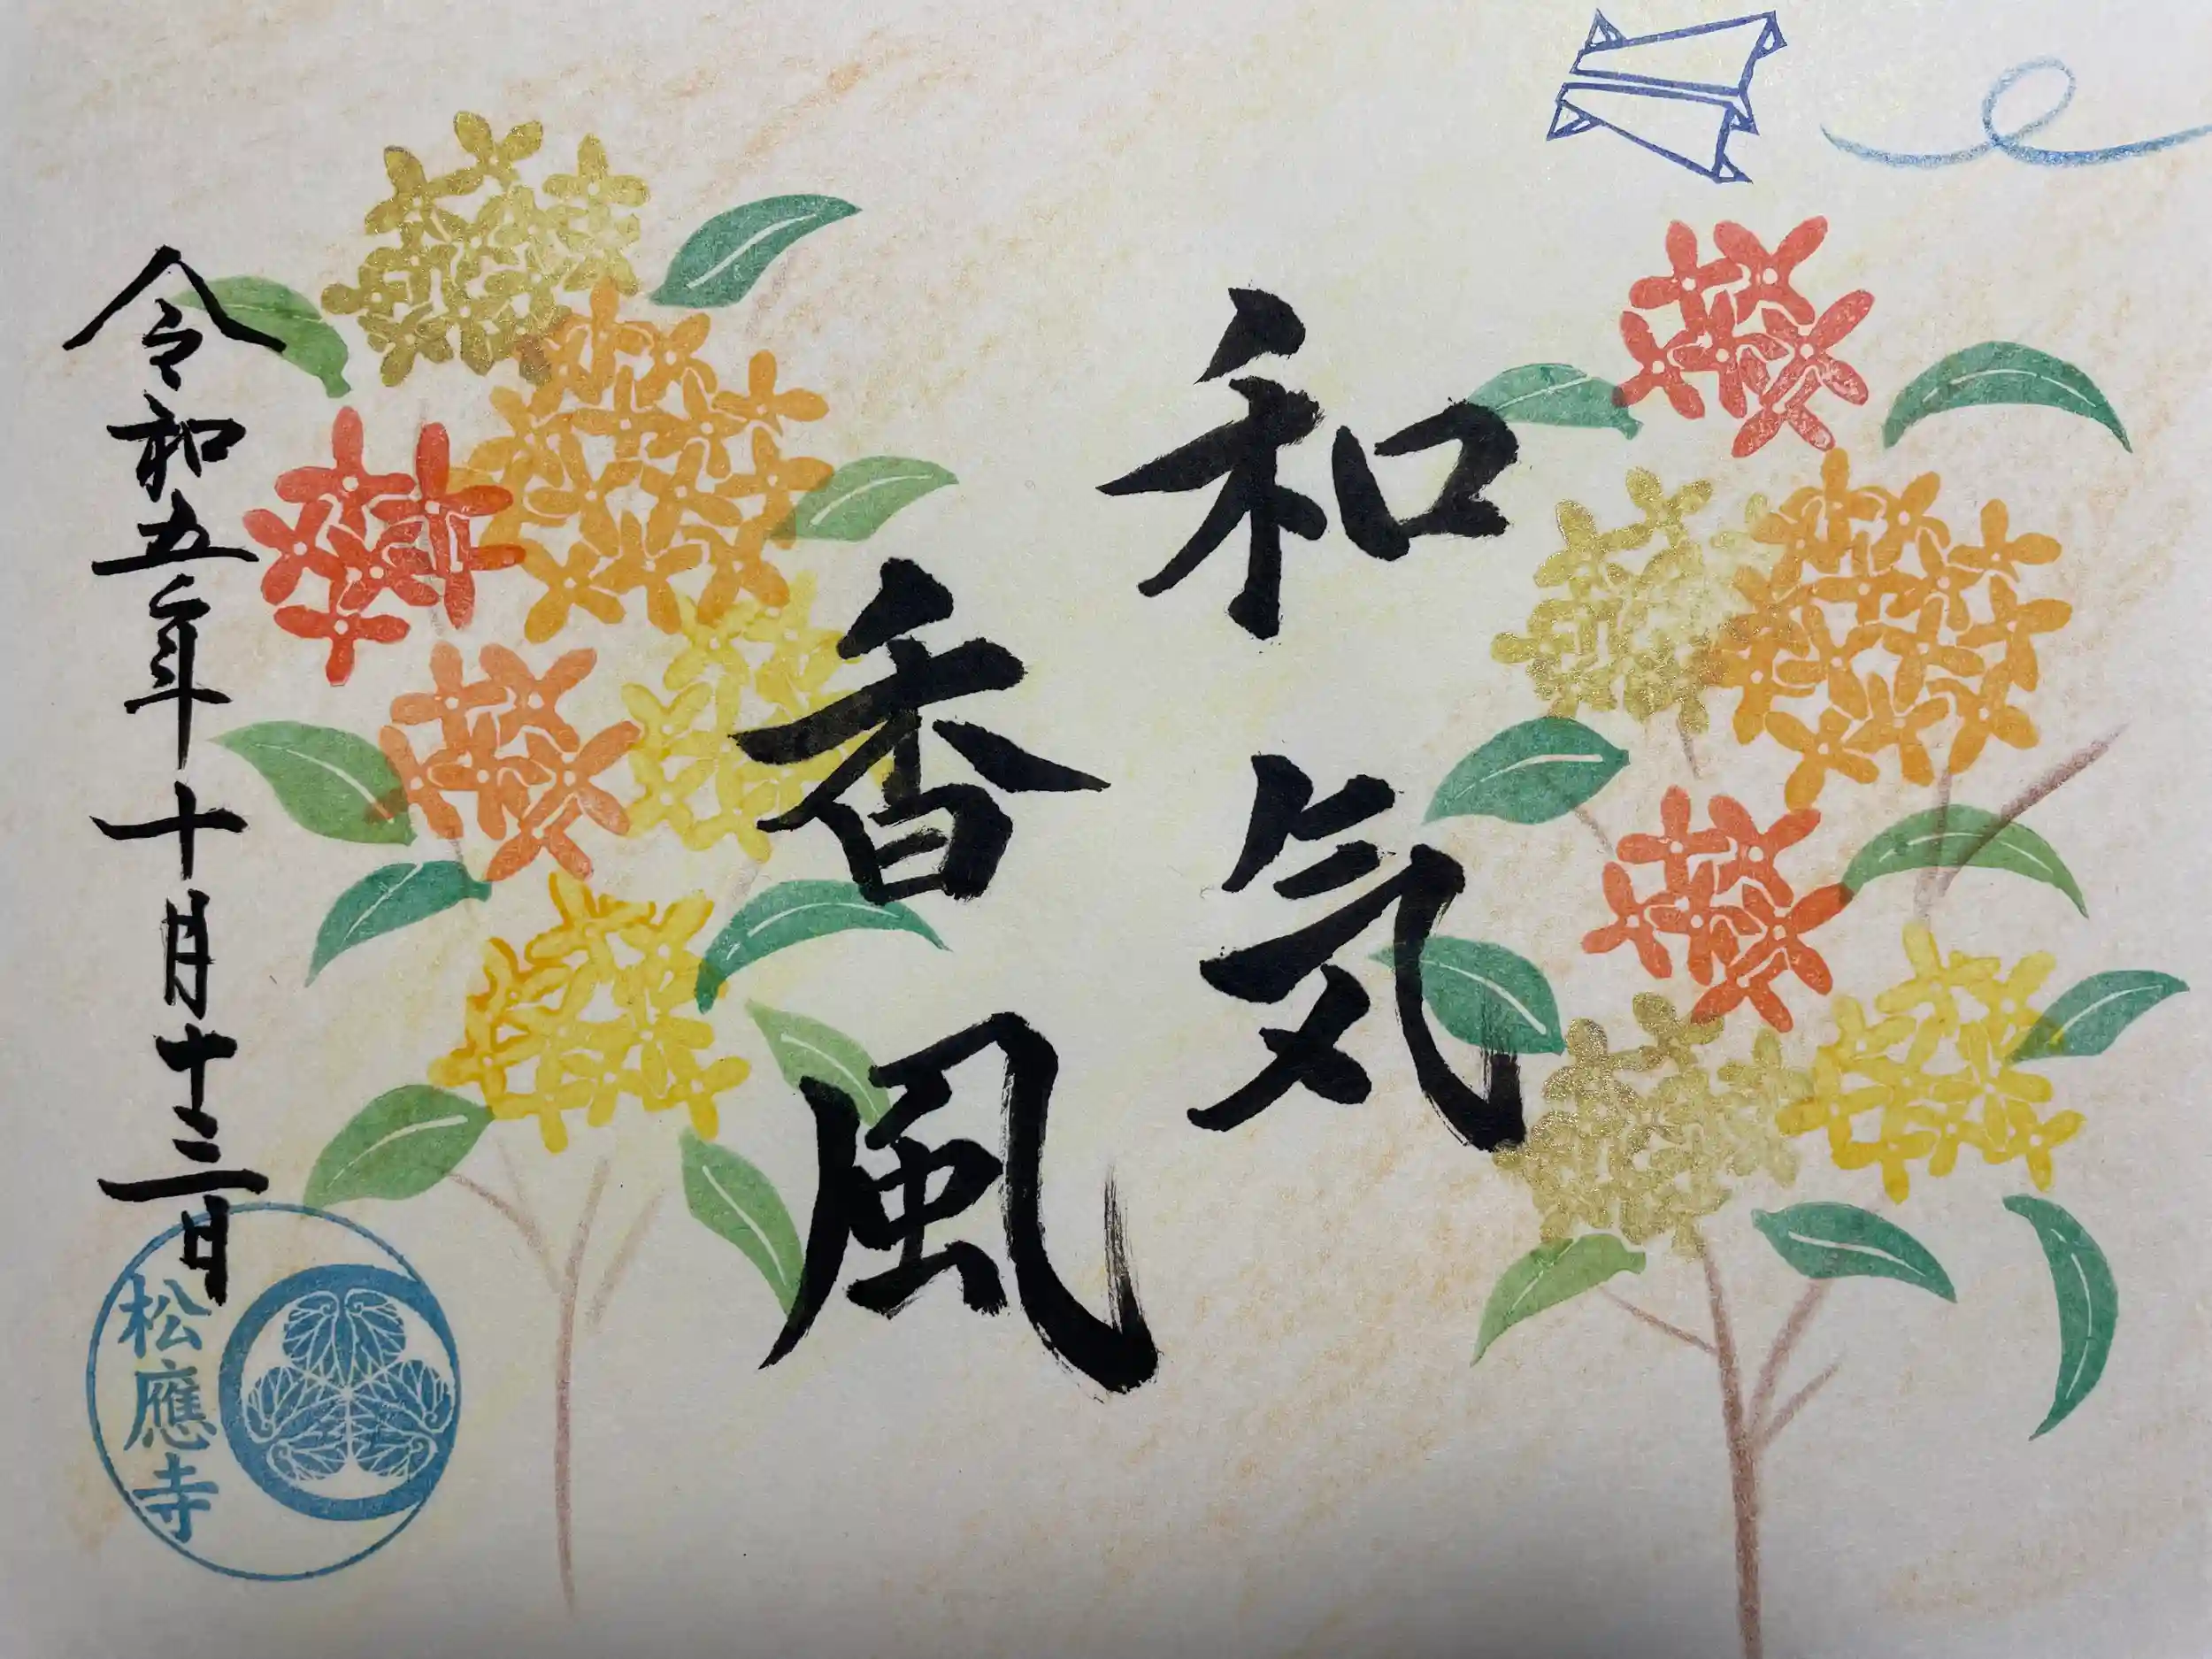 和気
香風
令和五年十月十三日
松應寺